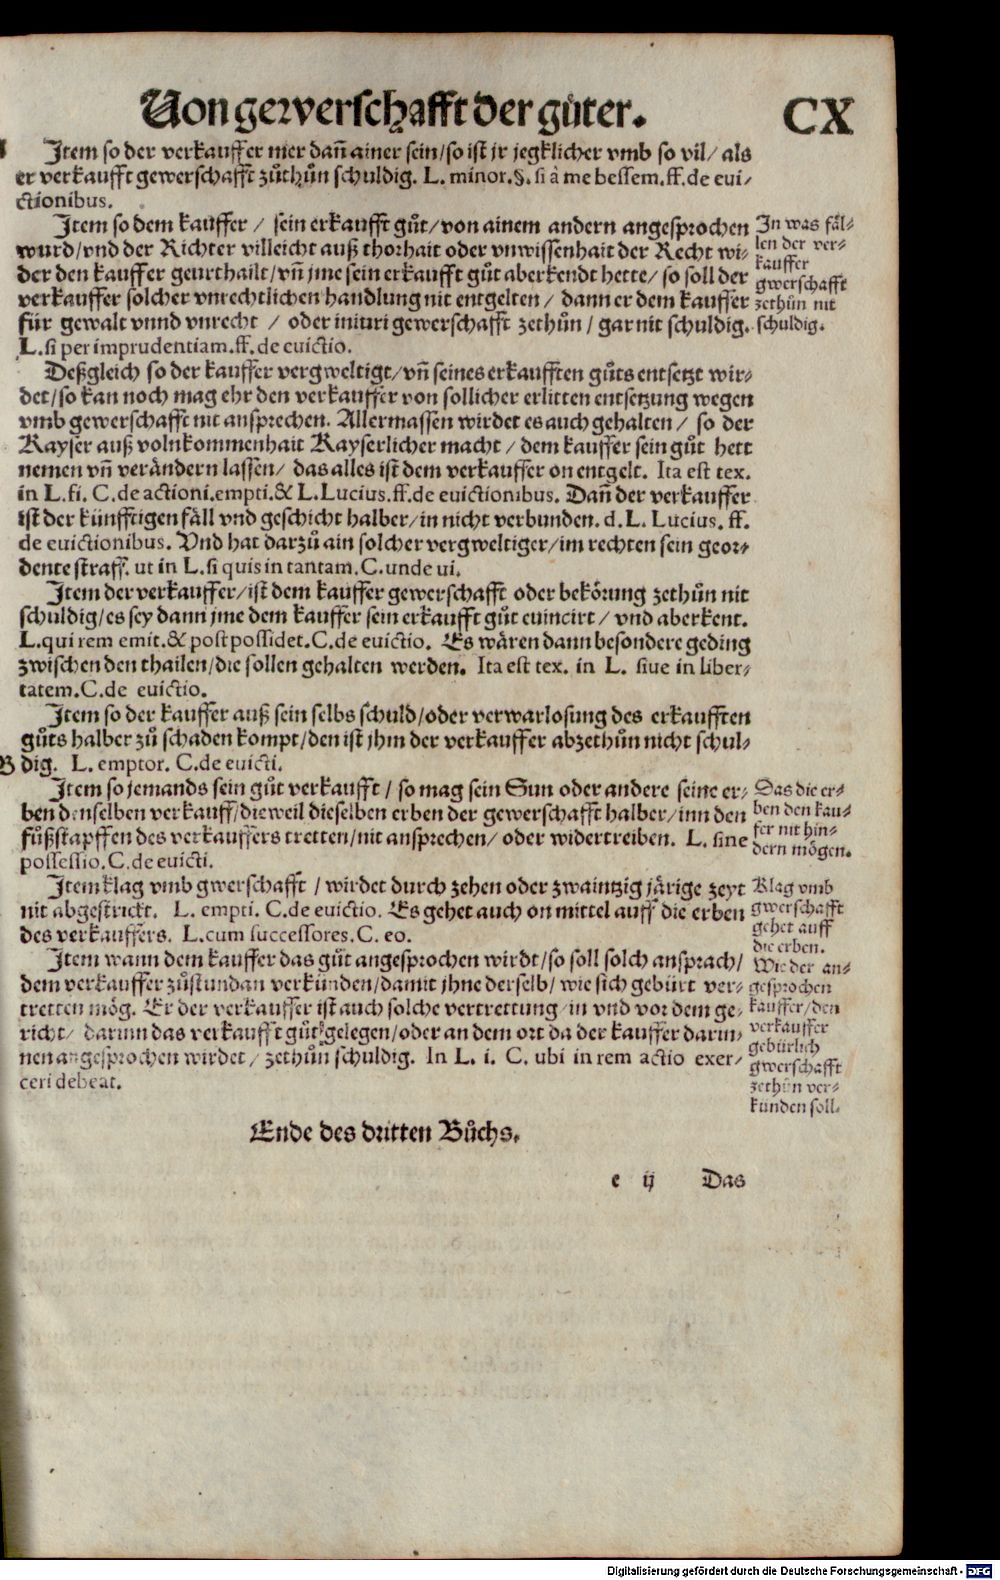 Von gewerschafft der gůter. CX
Item so der verkauffer mer dañ ainer sein/so ist jr jegklicher vmb so vil/ als
er verkaufft gewerschafft zůthůn schuldig. L. minor.§. si à me bessem.ff.de eui-
ctionibus.
Item so dem kauffer / sein erkaufft gůt/von ainem andern angesprochen
wurd/vnd der Richter villeicht auß thorhait oder vnwissenhait der Recht wi-
der den kauffer geurthailt/vñ jme sein erkaufft gůt aberkendt hette/ so soll der
verkauffer solcher vnrechtlichen handlung nit entgelten / dann er dem kauffer
für gewalt vnnd vnrecht / oder iniuri gewerschafft zethůn / gar nit schuldig.
L.si per imprudentiam.ff.de euictio.
In was fäl-
len der ver-
kauffer
gwerschafft
zethůn nit
schuldig.
Deßgleich so der kauffer vergweltigt/vñ seines erkaufften gůts entsetzt wir-
det/so kan noch mag ehr den verkauffer von sollicher erlitten entsetzung wegen
vmb gewerschafft nit ansprechen. Allermassen wirdet es auch gehalten / so der
Kayser auß volnkommenhait Kayserlicher macht / dem kauffer sein gůt hett
nemen vñ verändern lassen/ das alles ist dem verkauffer on entgelt. Ita est tex.
in L.fi. C.de actioni.empti.& L.Lucius.ff.de euictionibus. Dañ der verkauffer
ist der künfftigen fäll vnd geschicht halber/in nicht verbunden. d.L. Lucius. ff.
de euictionibus. Vnd hat darzů ain solcher vergweltiger/im rechten sein geor-
dente straff. ut in L.si quis in tantam.C.unde ui.
Item der verkauffer/ist dem kauffer gewerschafft oder bekörung zethůn nit
schuldig/es sey dann jme dem kauffer sein erkaufft gůt euincirt / vnd aberkent.
L.qui rem emit.& post possidet.C.de euictio. Es wären dann besondere geding
zwischen den thailen/die sollen gehalten werden. Ita est tex. in L. siue in liber-
tatem.C.de euictio.
Item so der kauffer auß sein selbs schuld/oder verwarlosung des erkaufften
gůts halber zů schaden kompt/den ist jhm der verkauffer abzethůn nicht schul-
B dig. L. emptor. C.de euicti.
Item so jemands sein gůt verkaufft / so mag sein Sun oder andere seine er-
ben denselben verkauff/dieweil dieselben erben der gewerschafft halber/inn den
fůßstapffen des verkauffers tretten/nit ansprechen/ oder widertreiben. L. sine
possessio.C.de euicti.
Das die er-
ben den kau-
fer nit hin-
dern mögen.
Item klag vmb gwerschafft / wirdet durch zehen oder zwaintzig järige zeyt
nit abgestrickt. L. empti. C.de euictio. Es gehet auch on mittel auff die erben
des verkauffers. L.cum successores.C. eo.
Klag vmb
gwerschafft
gehet auff
die erben.
Item wann dem kauffer das gůt angesprochen wirdt/so soll solch ansprach/
dem verkauffer zůstundan verkünden/damit jhne derselb/ wie sich gebürt ver-
tretten mög. Er der verkauffer ist auch solche vertrettung/in vnd vor dem ge-
richt/ darinn das verkaufft gůt gelegen/oder an dem ort da der kauffer darin-
nen angesprochen wirdet / zethůn schuldig. In L. i. C. ubi in rem actio exer-
ceri debeat.
Wie der an-
gesprochen
kauffer/den
verkauffer
gebürlich
gwerschafft
zethůn ver-
künden soll.
Ende des dritten Bůchs.
e ij Das
Digitalisierung gefördert durch die Deutsche Forschungsgemeinschaft - DFG